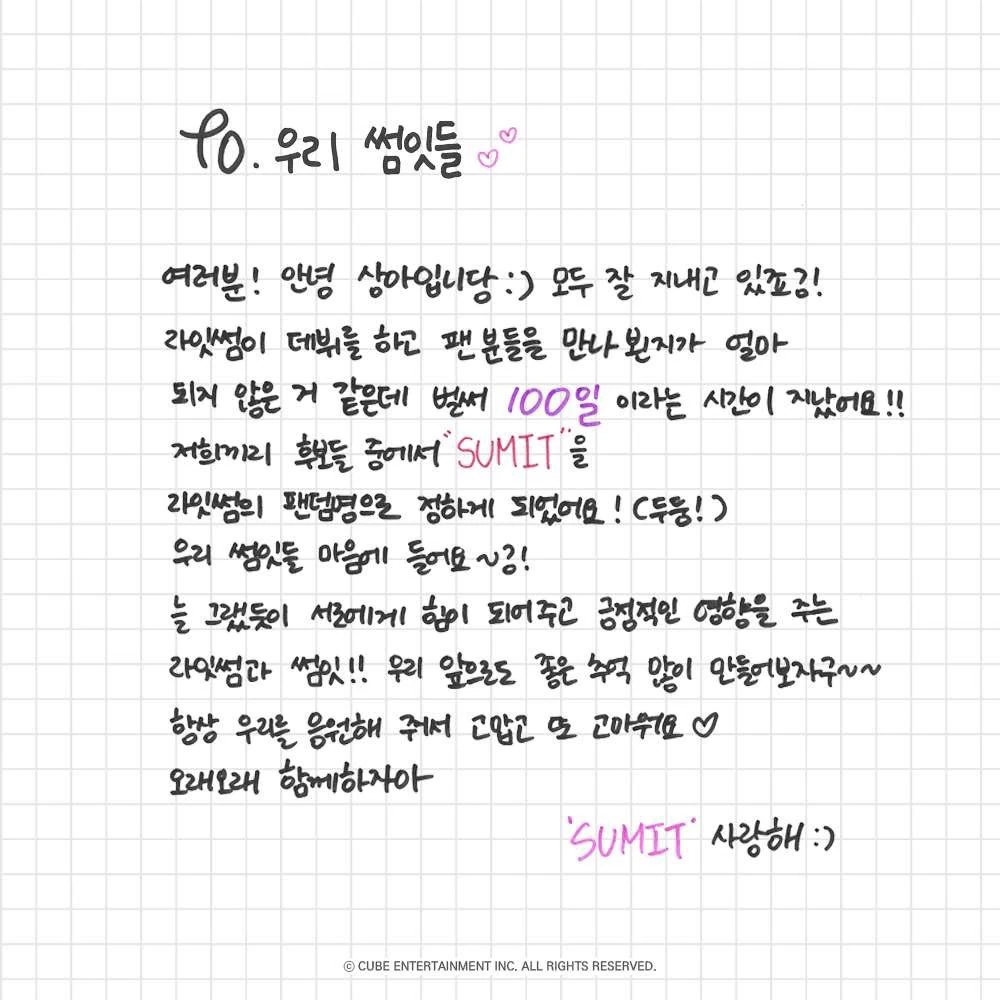 To. 우리 썸잇들♡♡
여러분! 안녕 상아입니당 :) 모두 잘 지내고 있죠깅!
라잇썸이 데뷔를 하고 팬 분들을 만나 뵌지가 얼마
되지 않은 거 같은데 벌써 100일 이라는 시간이 지났어요!!
저희끼리 후보들 중에서 "SUMIT"을
라잇썸의 팬덤명으로 정하게 되었어요! (두둥!)
우리 썸잇들 마음에 들어요~깅!
늘 그랬듯이 서로에게 힘이 되어주고 긍정적인 영향을 주는
라잇썸과 썸잇!! 우리 앞으로도 좋은 추억 많이 만들어보자구~~
항상 우리를 응원해 줘서 고맙고 또 고마워요♡
오래오래 함께하자아
'SUMIT' 사랑해 :)
© CUBE ENTERTAINMENT INC. ALL RIGHTS RESERVED.